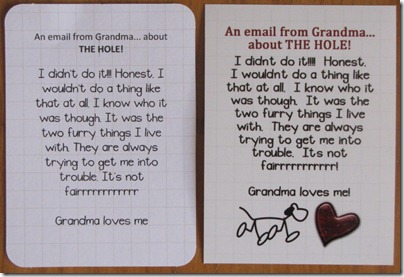 An email from Grandma... about
THE HOLE!
I didn't do it!!! Honest. I
wouldn't do a thing like
that at all. I know who it
was though. It was the
two furry things I live
with. They are always
trying to get me into
trouble. It's not
fairrrrrrrrrrrr
Grandma loves me
An email from Grandma...
about THE HOLE!
I didnt do it!!!! Honest.
I wouldnt do a thing like
that at all. I know who it
was though. It was the
two furry things I live
with. They are always
trying to get me into
trouble. It's not
fairrrrrrrrrrr!
Grandma loves me!